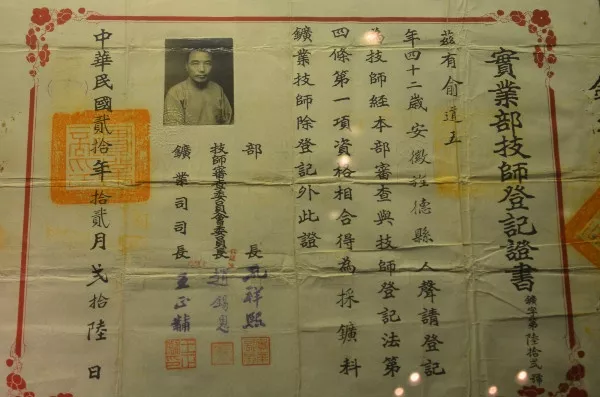 實業部技師登記證書
鑛字第陸拾弍號
茲有俞道五
年四十二歲安徽旌德縣人聲請登記
技師經本部審查與技師登記法第
四條第一項資格相合得為採鑛科
鑛業技師除登記外此證
部長孔祥熙
技師審查委員會委員長
鑛業司司長王正黼
中華民國貳拾年拾貳月弍拾陸日